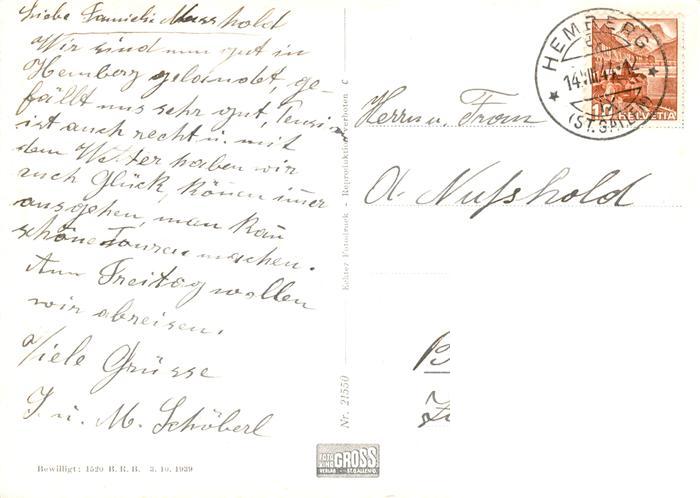 Liebe Familie Nusshold
Wir sind nun gut in
Hemberg gelandet, ge-
fällt uns sehr gut, Pension
ist auch recht u. mit
dem Wetter haben wir
auch Glück, können immer
ausgehen, man kann
schöne Touren machen.
Am Freitag wollen
wir abreisen.
Viele Grüsse
J. u. M. Schöberl
Bewilligt: 1520 B. R. B. 3. 10. 1939
Nr. 21550 Echter Fotodruck - Reproduktion verboten C
FOTO KINO VERLAG GROSS ST. GALLEN O.
HEMBERG
14.VIII.44.-12
(ST.GALLEN)
10 HELVETIA
Herrn u. Frau
A. Nusshold